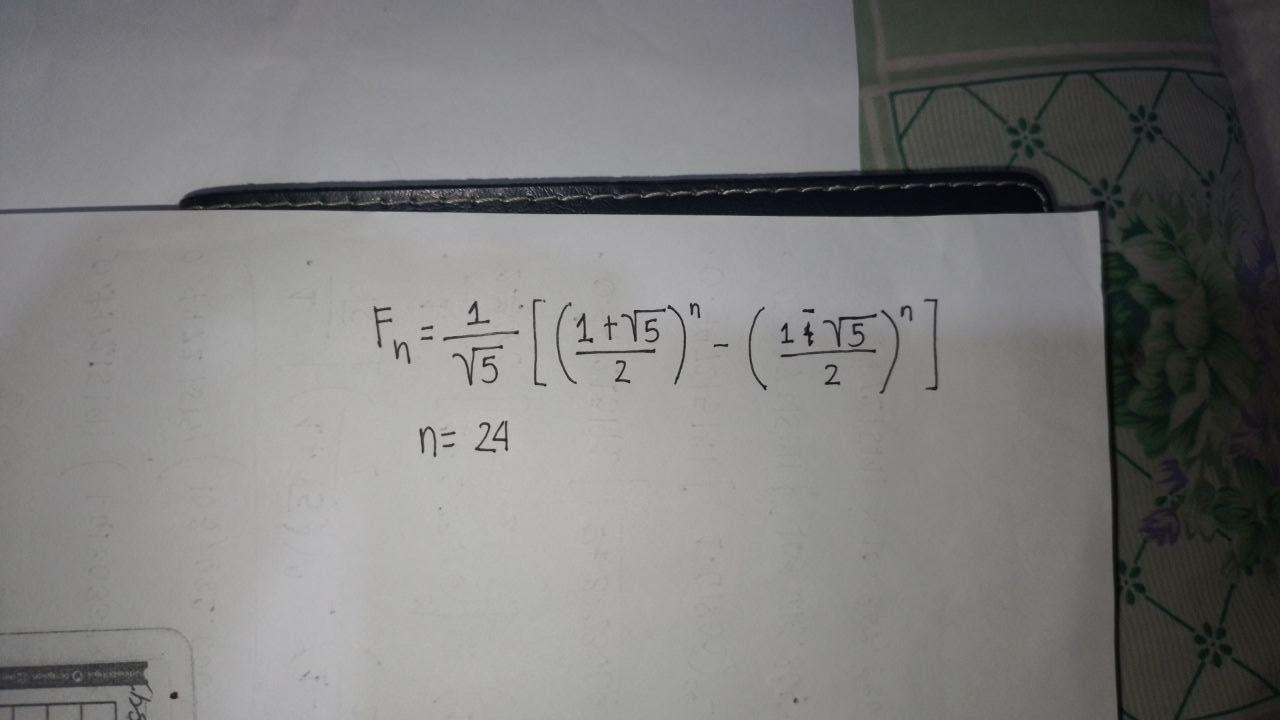 Fₙ = 1/√5 [((1+√5)/2)ⁿ - ((1-√5)/2)ⁿ]
n= 24